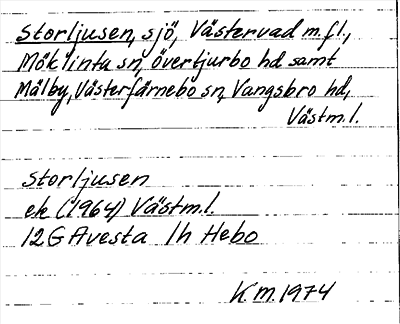 Storljusen, sjö, Västervad m.fl.,
Möklinta sn, Övertjurbo hd samt
Mälby, Västerfärnebo sn, Vangsbro hd,
Västm.l.
Storljusen
ek (1964) Västm.l.
12G Avesta 1h Hebo
K.M. 1974